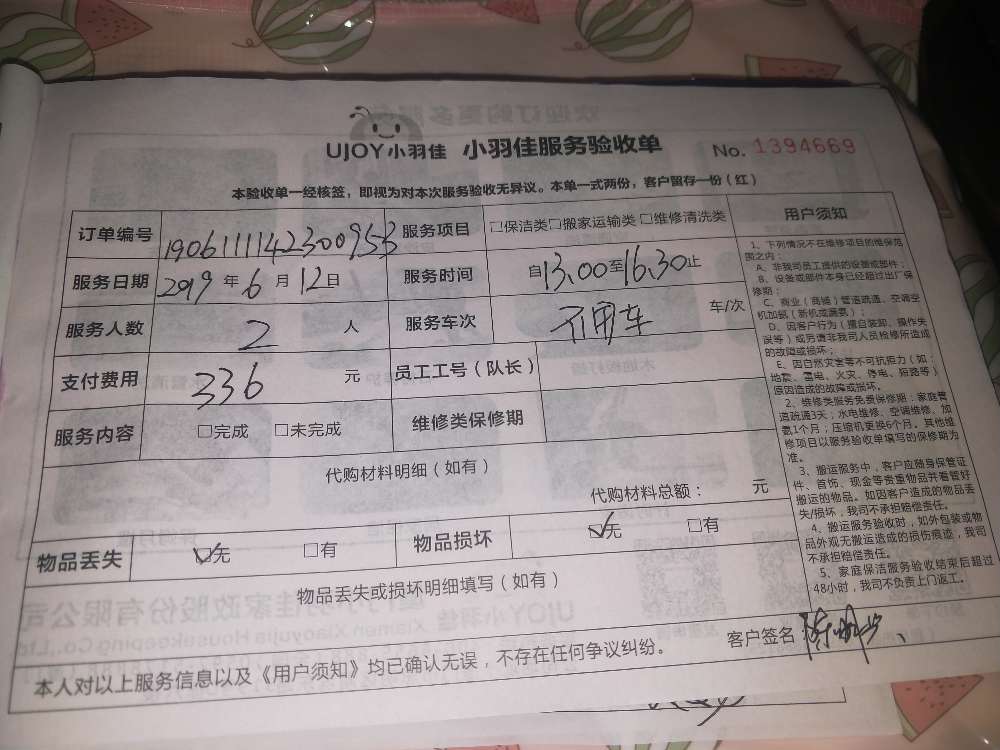 UJOY小羽佳 小羽佳服务验收单 No. 1394669
本验收单一经核签，即视为对本次服务验收无异议。本单一式两份，客户留存一份（红）
订单编号 1906111142300953 服务项目 □保洁类□搬家运输类□维修清洗类
服务日期 2019年6月12日 服务时间 自13.00至16.30止
服务人数 2 人 服务车次 不用车 车/次
支付费用 336 元 员工工号（队长）
服务内容 □完成 □未完成 维修类保修期
代购材料明细（如有）
代购材料总额： 元
物品丢失 ☑无 □有 物品损坏 ☑无 □有
物品丢失或损坏明细填写（如有）
客户签名
本人对以上服务信息以及《用户须知》均已确认无误，不存在任何争议纠纷。
用户须知
1、下列情况不在维修项目的维保范
围之内：
A、非我司员工提供的设备或部件；
B、设备或部件本身已经超过出厂保
修期；
C、商业（商铺）管道疏通、空调空
机加氨（新机或漏氨）；
D、因客户行为（擅自装卸、操作失
误等）或另请非我司人员检修所造成
的故障或损坏；
E、因自然灾害等不可抗拒力（如：
地震、雷电、火灾、停电、短路等）
原因造成的故障或损坏。
2、维修类服务免费保修期：家庭管
道疏通3天；水电维修、空调维修、加
氨1个月；压缩机更换6个月。其他维
修项目以服务验收单填写的保修期为
准。
3、搬运服务中，客户应随身保管证
件、首饰、现金等贵重物品并看管好
搬运的物品。如因客户造成的物品丢
失/损坏，我司不承担赔偿责任。
4、搬运服务验收时，如外包装或物
品外观无搬运造成的损伤痕迹，我司
不承担赔偿责任。
5、家庭保洁服务验收结束后超过
48小时，我司不负责上门返工。